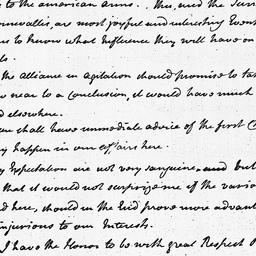 to the american Arms. . This, and the Surr
ornwallis, are most joyful and interesting Event
us to know what Influence they will have on
ls.
the Alliance in agitation should promise to tak
or near to a Conclusion, it would have much
d elsewhere.
we shall have immediate advice of the first C
y happen in our affairs here.
y Expectation are not very sanguine, and but
that it would not surprize me if the variou
d here, should in the End prove more advant
injurious to our Interests.
I have the Honor to be with great Respect